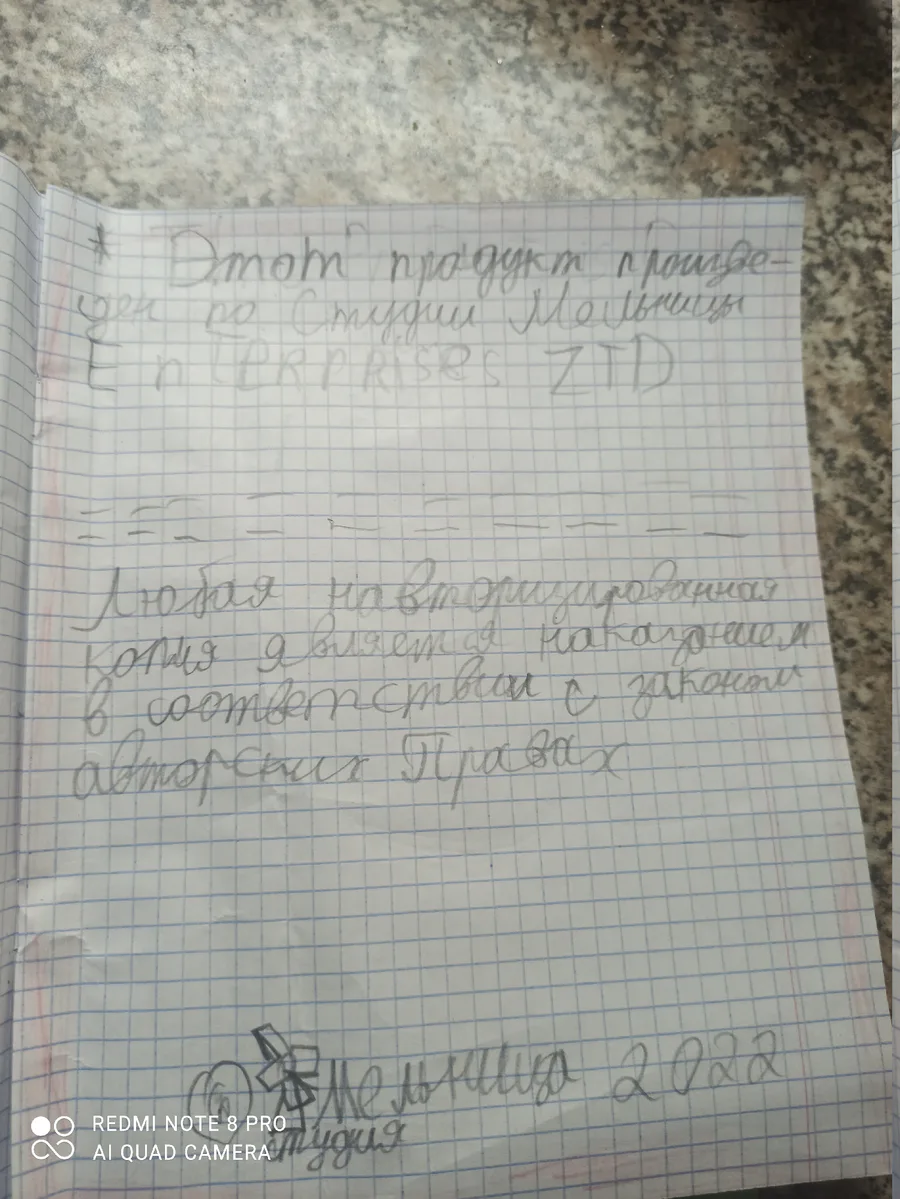 * Этот продукт произве-
ден по Студии Мельницы
EnTERPRisEs ZTD
Любая навторизированная
копия является наказанием
в соответствии с законом
авторских Правах
Мельница 2022
студия
REDMI NOTE 8 PRO
AI QUAD CAMERA